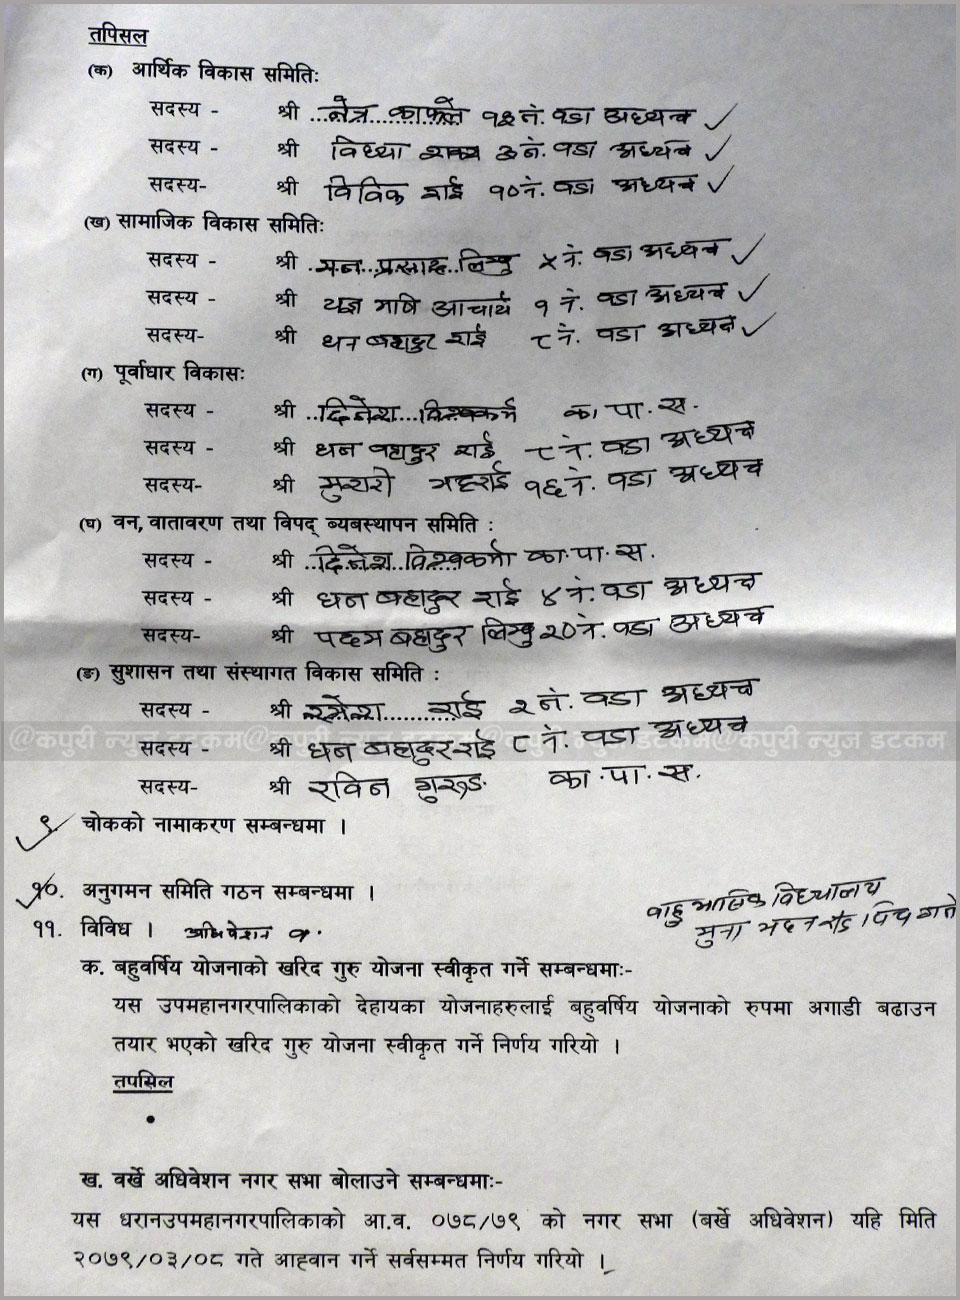 तपिसल
(क) आर्थिक विकास समितिः
सदस्य - श्री ...नेत्र काफ्ले १३ नं. वडा अध्यक्ष ✓
सदस्य - श्री विध्या नं. वडा अध्यक्ष ✓
सदस्य- श्री विविक राई १० नं. वडा अध्यक्ष ✓
(ख) सामाजिक विकास समितिः
सदस्य - श्री .मन..प्रसाद..लिम्बु ५ नं. वडा अध्यक्ष ✓
सदस्य - श्री यज्ञ मणि आचार्य १ नं. वडा अध्यक्ष ✓
सदस्य- श्री धन बहादुर राई ८ नं. वडा अध्यक्ष ✓
(ग) पूर्वाधार विकासः
सदस्य - श्री ..दिनेश...विश्वकर्मा का.पा.स.
सदस्य - श्री धन बहादुर राई ८ नं. वडा अध्यक्ष
सदस्य- श्री १६ नं. वडा अध्यक्ष
(घ) वन, वातावरण तथा विपद् ब्यबस्थापन समिति :
सदस्य - श्री ..दिनेश विश्वकर्मा का.पा.स.
सदस्य - श्री धन बहादुर राई ४ नं. वडा अध्यक्ष
सदस्य- श्री पदम बहादुर लिम्बु २० नं. वडा अध्यक्ष
(ङ) सुशासन तथा संस्थागत विकास समिति :
सदस्य - श्री रमेश........... राई २ नं. वडा अध्यक्ष
@कपुरी न्युज डटकम@कपुरी न्युज डटकम@कपुरी न्युज डटकम
सदस्य - श्री धन बहादुर राई ८ नं. वडा अध्यक्ष
सदस्य- श्री रविन गुरुङ का.पा.स.
९. चोकको नामाकरण सम्बन्धमा ।
१०. अनुगमन समिति गठन सम्बन्धमा ।
बाहु भाषिक विद्यालय
मुना भदन रोड पिच गर्ने
११. विविध । अधिवेशन
क. बहुवर्षिय योजनाको खरिद गुरु योजना स्वीकृत गर्ने सम्बन्धमाः-
यस उपमहानगरपालिकाको देहायका योजनाहरुलाई बहुवर्षिय योजनाको रुपमा अगाडी बढाउन
तयार भएको खरिद गुरु योजना स्वीकृत गर्ने निर्णय गरियो ।
तपसिल
•
ख. वर्खे अधिवेशन नगर सभा बोलाउने सम्बन्धमाः-
यस धरानउपमहानगरपालिकाको आ.व. ०७८/७९ को नगर सभा (बर्खे अधिवेशन) यहि मिति
२०७९/०३/०८ गते आह्वान गर्ने सर्वसम्मत निर्णय गरियो ।